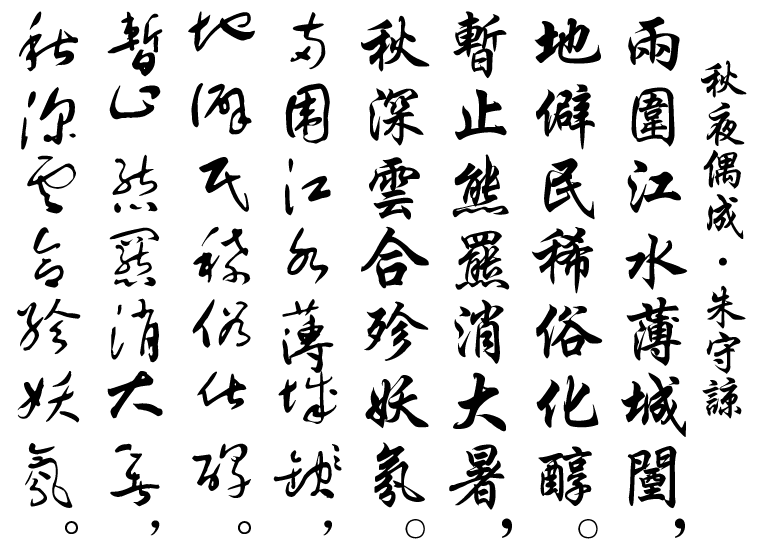 秋夜偶成・朱守諒
兩圍江水薄城闉,
地僻民稀俗化醇。
暫止熊羆消大暑,
秋深雲合殄妖氛。
兩圍江水薄城,
地僻民稀俗化醇。
暫止熊羆消大暑,
秋深雲合殄妖氛。